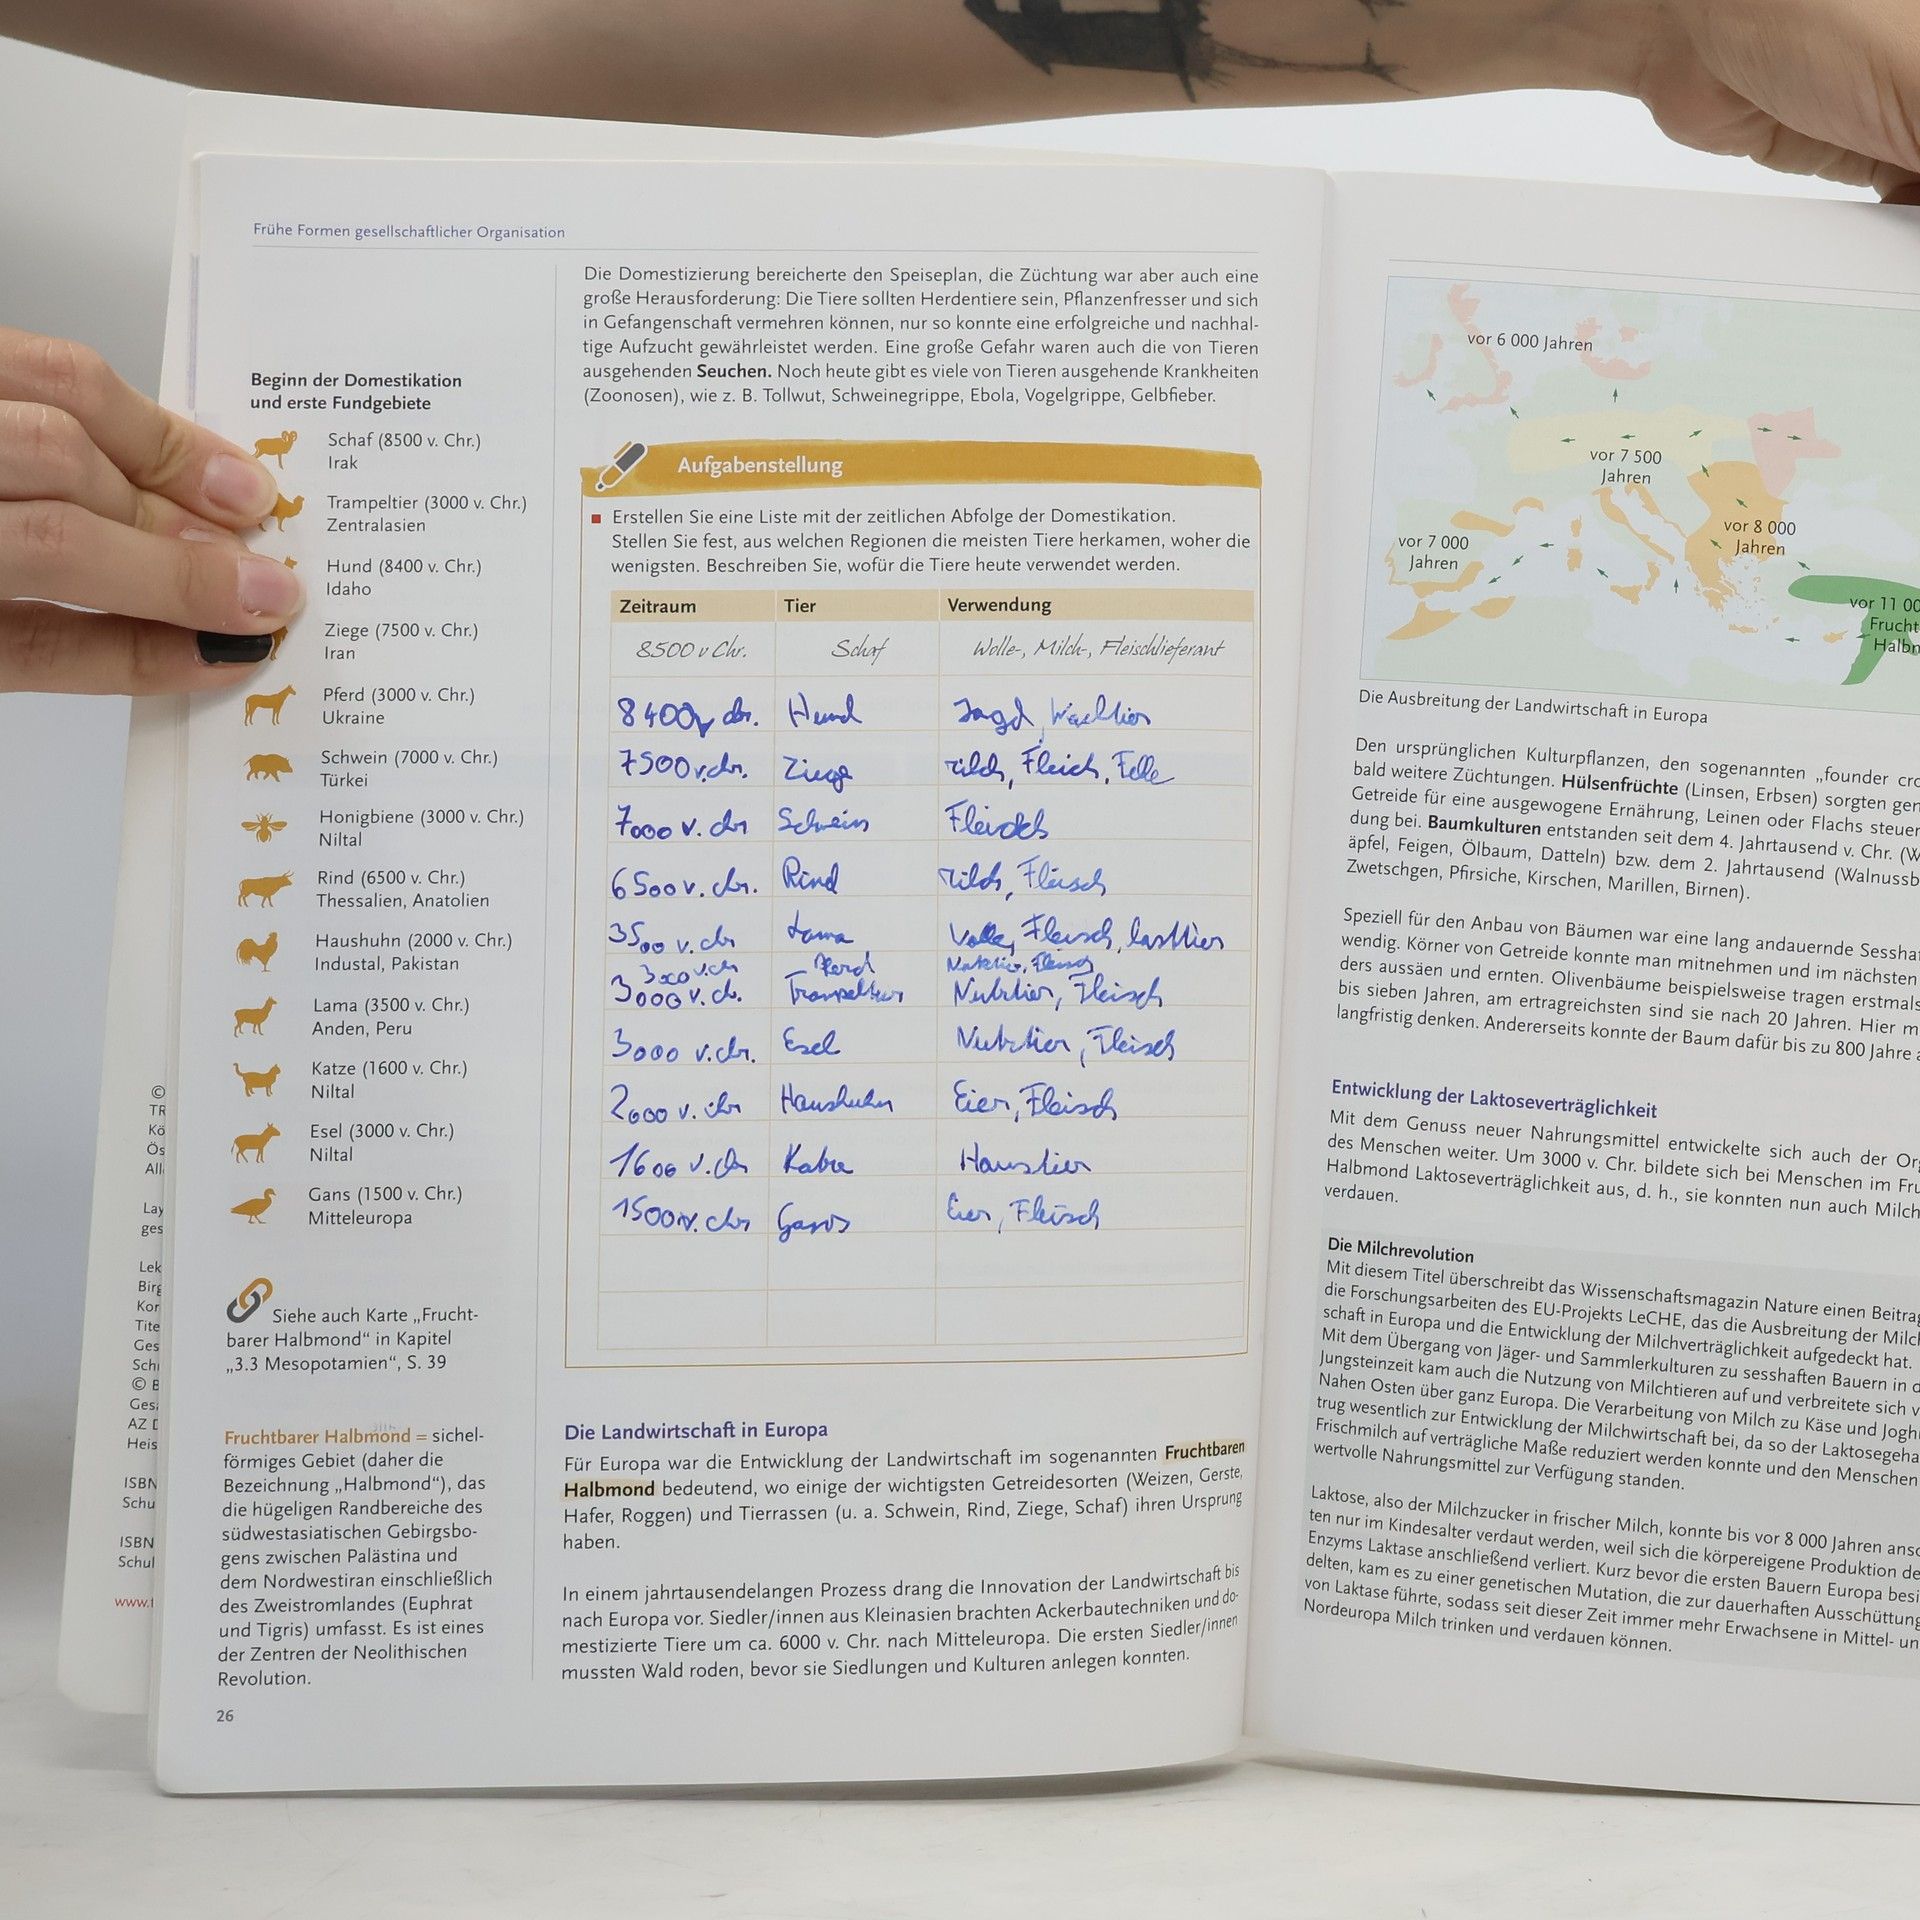 Frühe Formen gesellschaftlicher Organisation
Beginn der Domestikation
und erste Fundgebiete
Schaf (8500 v. Chr.)
Irak
Trampeltier (3000 v. Chr.)
Zentralasien
Hund (8400 v. Chr.)
Idaho
Ziege (7500 v. Chr.)
Iran
Pferd (3000 v. Chr.)
Ukraine
Schwein (7000 v. Chr.)
Türkei
Honigbiene (3000 v. Chr.)
Niltal
Rind (6500 v. Chr.)
Thessalien, Anatolien
Haushuhn (2000 v. Chr.)
Industal, Pakistan
Lama (3500 v. Chr.)
Anden, Peru
Katze (1600 v. Chr.)
Niltal
Esel (3000 v. Chr.)
Niltal
Gans (1500 v. Chr.)
Mitteleuropa
Siehe auch Karte „Frucht-
barer Halbmond“ in Kapitel
„3.3 Mesopotamien“, S. 39
Fruchtbarer Halbmond = sichel-
förmiges Gebiet (daher die
Bezeichnung „Halbmond“), das
die hügeligen Randbereiche des
südwestasiatischen Gebirgsbo-
gens zwischen Palästina und
dem Nordwestiran einschließlich
des Zweistromlandes (Euphrat
und Tigris) umfasst. Es ist eines
der Zentren der Neolithischen
Revolution.
26
Die Domestizierung bereicherte den Speiseplan, die Züchtung war aber auch eine
große Herausforderung: Die Tiere sollten Herdentiere sein, Pflanzenfresser und sich
in Gefangenschaft vermehren können, nur so konnte eine erfolgreiche und nachhal-
tige Aufzucht gewährleistet werden. Eine große Gefahr waren auch die von Tieren
ausgehenden Seuchen. Noch heute gibt es viele von Tieren ausgehende Krankheiten
(Zoonosen), wie z. B. Tollwut, Schweinegrippe, Ebola, Vogelgrippe, Gelbfieber.
Aufgabenstellung
Erstellen Sie eine Liste mit der zeitlichen Abfolge der Domestikation.
Stellen Sie fest, aus welchen Regionen die meisten Tiere herkamen, woher die
wenigsten. Beschreiben Sie, wofür die Tiere heute verwendet werden.
Zeitraum Tier Verwendung
8500 v Chr. Schaf Wolle-, Milch-, Fleischlieferant
8400 v. chr. Hund Jagd, Wachtier
7500 v. chr. Ziege Milch, Fleich, Felle
7000 v. chr Schwein Fleisch
6500 v. chr. Rind Milch, Fleisch
3500 v. chr Lama Wolle, Fleisch, lasttier
3000 v. chr Pferd Nutztier, Fleisch
3000 v. ch. Trampeltier Nutztier, Fleisch
3000 v. chr. Esel Nutztier, Fleisch
2000 v. chr Haushuhn Eier, Fleisch
1600 v. chr Katze Haustier
1500 v. chr Gans Eier, Fleisch
Die Landwirtschaft in Europa
Für Europa war die Entwicklung der Landwirtschaft im sogenannten Fruchtbaren
Halbmond bedeutend, wo einige der wichtigsten Getreidesorten (Weizen, Gerste,
Hafer, Roggen) und Tierrassen (u. a. Schwein, Rind, Ziege, Schaf) ihren Ursprung
haben.
In einem jahrtausendelangen Prozess drang die Innovation der Landwirtschaft bis
nach Europa vor. Siedler/innen aus Kleinasien brachten Ackerbautechniken und do-
mestizierte Tiere um ca. 6000 v. Chr. nach Mitteleuropa. Die ersten Siedler/innen
mussten Wald roden, bevor sie Siedlungen und Kulturen anlegen konnten.
vor 6 000 Jahren
vor 7 500
Jahren
vor 8 000
Jahren
vor 7 000
Jahren
vor 11 00
Frucht
Halbm
Die Ausbreitung der Landwirtschaft in Europa
Den ursprünglichen Kulturpflanzen, den sogenannten „founder cro
bald weitere Züchtungen. Hülsenfrüchte (Linsen, Erbsen) sorgten gem
Getreide für eine ausgewogene Ernährung, Leinen oder Flachs steuer
dung bei. Baumkulturen entstanden seit dem 4. Jahrtausend v. Chr. (W
äpfel, Feigen, Ölbaum, Datteln) bzw. dem 2. Jahrtausend (Walnussb
Zwetschgen, Pfirsiche, Kirschen, Marillen, Birnen).
Speziell für den Anbau von Bäumen war eine lang andauernde Sessha
wendig. Körner von Getreide konnte man mitnehmen und im nächsten
ders aussäen und ernten. Olivenbäume beispielsweise tragen erstmals
bis sieben Jahren, am ertragreichsten sind sie nach 20 Jahren. Hier m
langfristig denken. Andererseits konnte der Baum dafür bis zu 800 Jahre a
Entwicklung der Laktoseverträglichkeit
Mit dem Genuss neuer Nahrungsmittel entwickelte sich auch der Org
des Menschen weiter. Um 3000 v. Chr. bildete sich bei Menschen im Fru
Halbmond Laktoseverträglichkeit aus, d. h., sie konnten nun auch Milch
verdauen.
Die Milchrevolution
Mit diesem Titel überschreibt das Wissenschaftsmagazin Nature einen Beitrag
die Forschungsarbeiten des EU-Projekts LeCHE, das die Ausbreitung der Milch
schaft in Europa und die Entwicklung der Milchverträglichkeit aufgedeckt hat.
Mit dem Übergang von Jäger- und Sammlerkulturen zu sesshaften Bauern in d
Jungsteinzeit kam auch die Nutzung von Milchtieren auf und verbreitete sich v
Nahen Osten über ganz Europa. Die Verarbeitung von Milch zu Käse und Jogh
trug wesentlich zur Entwicklung der Milchwirtschaft bei, da so der Laktosegeha
Frischmilch auf verträgliche Maße reduziert werden konnte und den Menschen
wertvolle Nahrungsmittel zur Verfügung standen.
Laktose, also der Milchzucker in frischer Milch, konnte bis vor 8 000 Jahren ansc
ten nur im Kindesalter verdaut werden, weil sich die körpereigene Produktion de
Enzyms Laktase anschließend verliert. Kurz bevor die ersten Bauern Europa besi
delten, kam es zu einer genetischen Mutation, die zur dauerhaften Ausschüttung
von Laktase führte, sodass seit dieser Zeit immer mehr Erwachsene in Mittel- un
Nordeuropa Milch trinken und verdauen können.
©
TR
Kö
Ös
All
Lay
ges
Lek
Birg
Kor
Tite
Ges
Sch
© B
Ges
AZ D
Heis
ISBN
Schu
ISBN
Schul
www.t